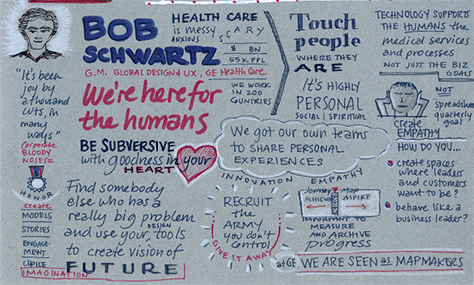 BOB
SCHWARTZ
G.M. GLOBAL DESIGN & UX, GE Health Care
HEALTH CARE
is messy
ANXIOUS
SCARY
$ 8 BN
55K PPL
WE WORK
IN 200
CUNTRIES
Touch
people
WHERE THEY
ARE
IT'S HIGHLY
PERSONAL
SOCIAL | SPIRITUAL
TECHNOLOGY SUPPORTS
THE HUMANS the
medical services
and processes
NOT JUST THE BIZ
GOALS
NOT
Spreadsheet
quarterly
goal
CREATE
EMPATHY
HOW DO YOU...
create spaces
where leaders
and customers
want to be?
behave like a
business leader?
"It's been
joy by
a thousand
cuts, in
many
ways"
Corporate
BLOODY
NOSES =
HONOR
create
MODELS
STORIES
ENGAGE-
MENT
CHOICE
IMAGINATION
We're here for
the humans
BE SUBVERSIVE
with goodness in your
HEART
Find somebody
else who has a
really big problem
and use your DESIGN tools
to create vision of
FUTURE
We got our own teams
to SHARE PERSONAL
EXPERIENCES
INNOVATION
EMPATHY
RECRUIT
the
ARMY
you don't
control
GIVE IT AWAY
Journey Map
ACHIEVE
ASPIRE
IMPORTANT TO
MEASURE
AND ARCHIVE
progress
at GE, WE ARE SEEN as MAPMAKERS